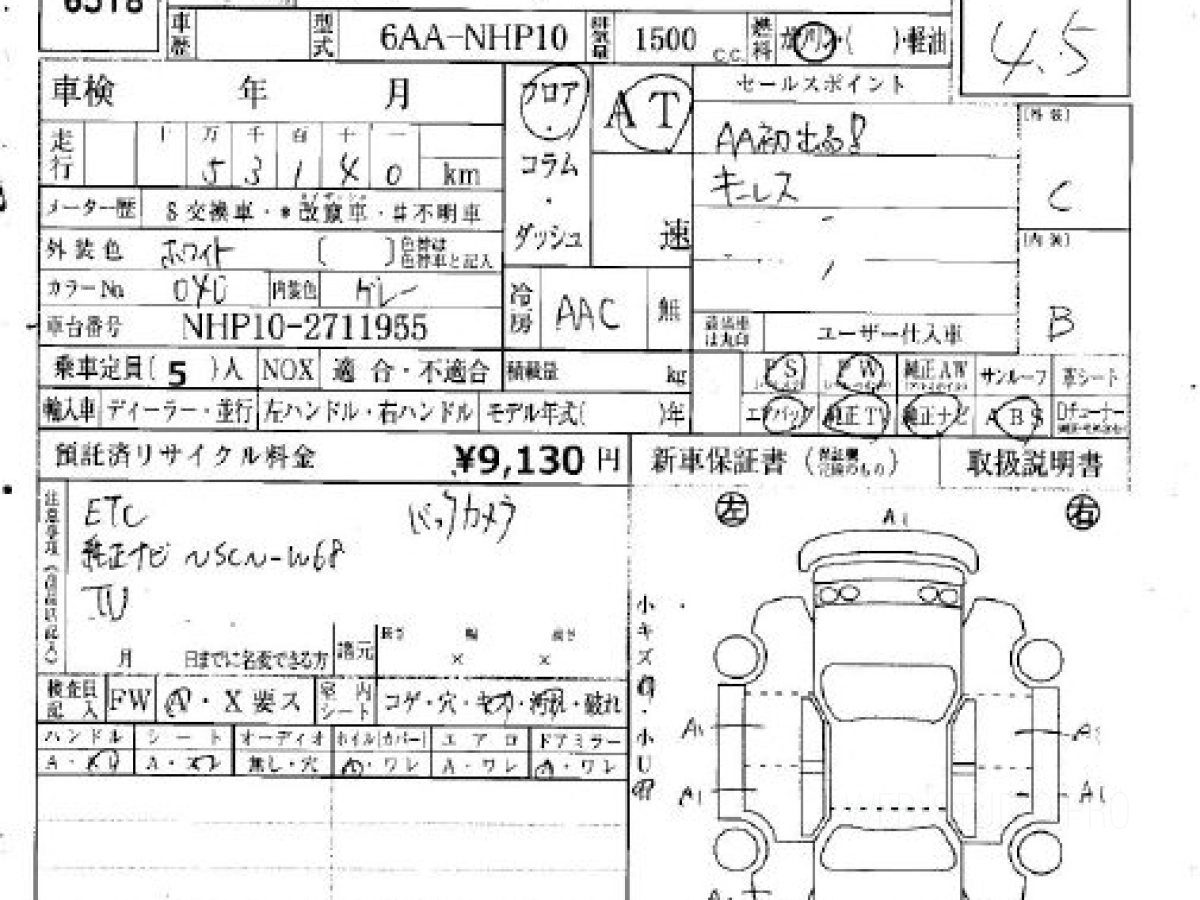 車歴 型式 6AA-NHP10 排気量 1500 C.C. 燃料 ガソリン・( )・軽油
4.5
車検 年 月 フロア AT セールスポイント
走行 十 万 千 百 十 一
5 3 1 4 0 km
・ コラム ・ ダッシュ 速
AA初出品!
キーレス
[外装] C
[内装] B
メーター歴 $交換車・*改竄車・#不明車
外装色 ホワイト ( ) 色替は色替車と記入
カラーNo 040 内装色 グレー
冷房 AAC 無
車台番号 NHP10-2711955
ユーザー仕入車
乗車定員( 5 )人 NOX 適合・不適合 積載量 kg
PS PW 純正AW サンルーフ 革シート
輸入車 ディーラー・並行 左ハンドル・右ハンドル モデル年式( )年
エアバッグ 純正TV 純正ナビ ABS Dチューナー
預託済リサイクル料金 ¥9,130 円 新車保証書 取扱説明書
ETC バックカメラ
純正ナビ NSCN-W68
TV
左 A1 右
月 日までに名変できる方 諸元 長さ × 幅 × 高さ
検査員記入 FW A・X要ス 室内シート コゲ・穴・キズ・汚れ・破れ
ハンドル シート オーディオ ホイル(カバー) エアロ ドアミラー
A・スレ A・スレ 無し・穴 A・ワレ A・ワレ A・ワレ
小キズ有・小U有
A1
A1
A1